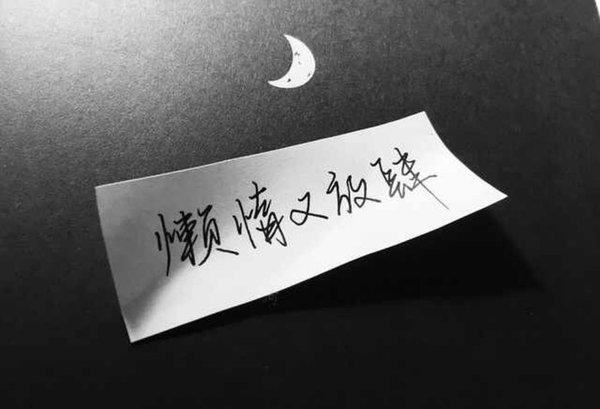 懒惰又放肆